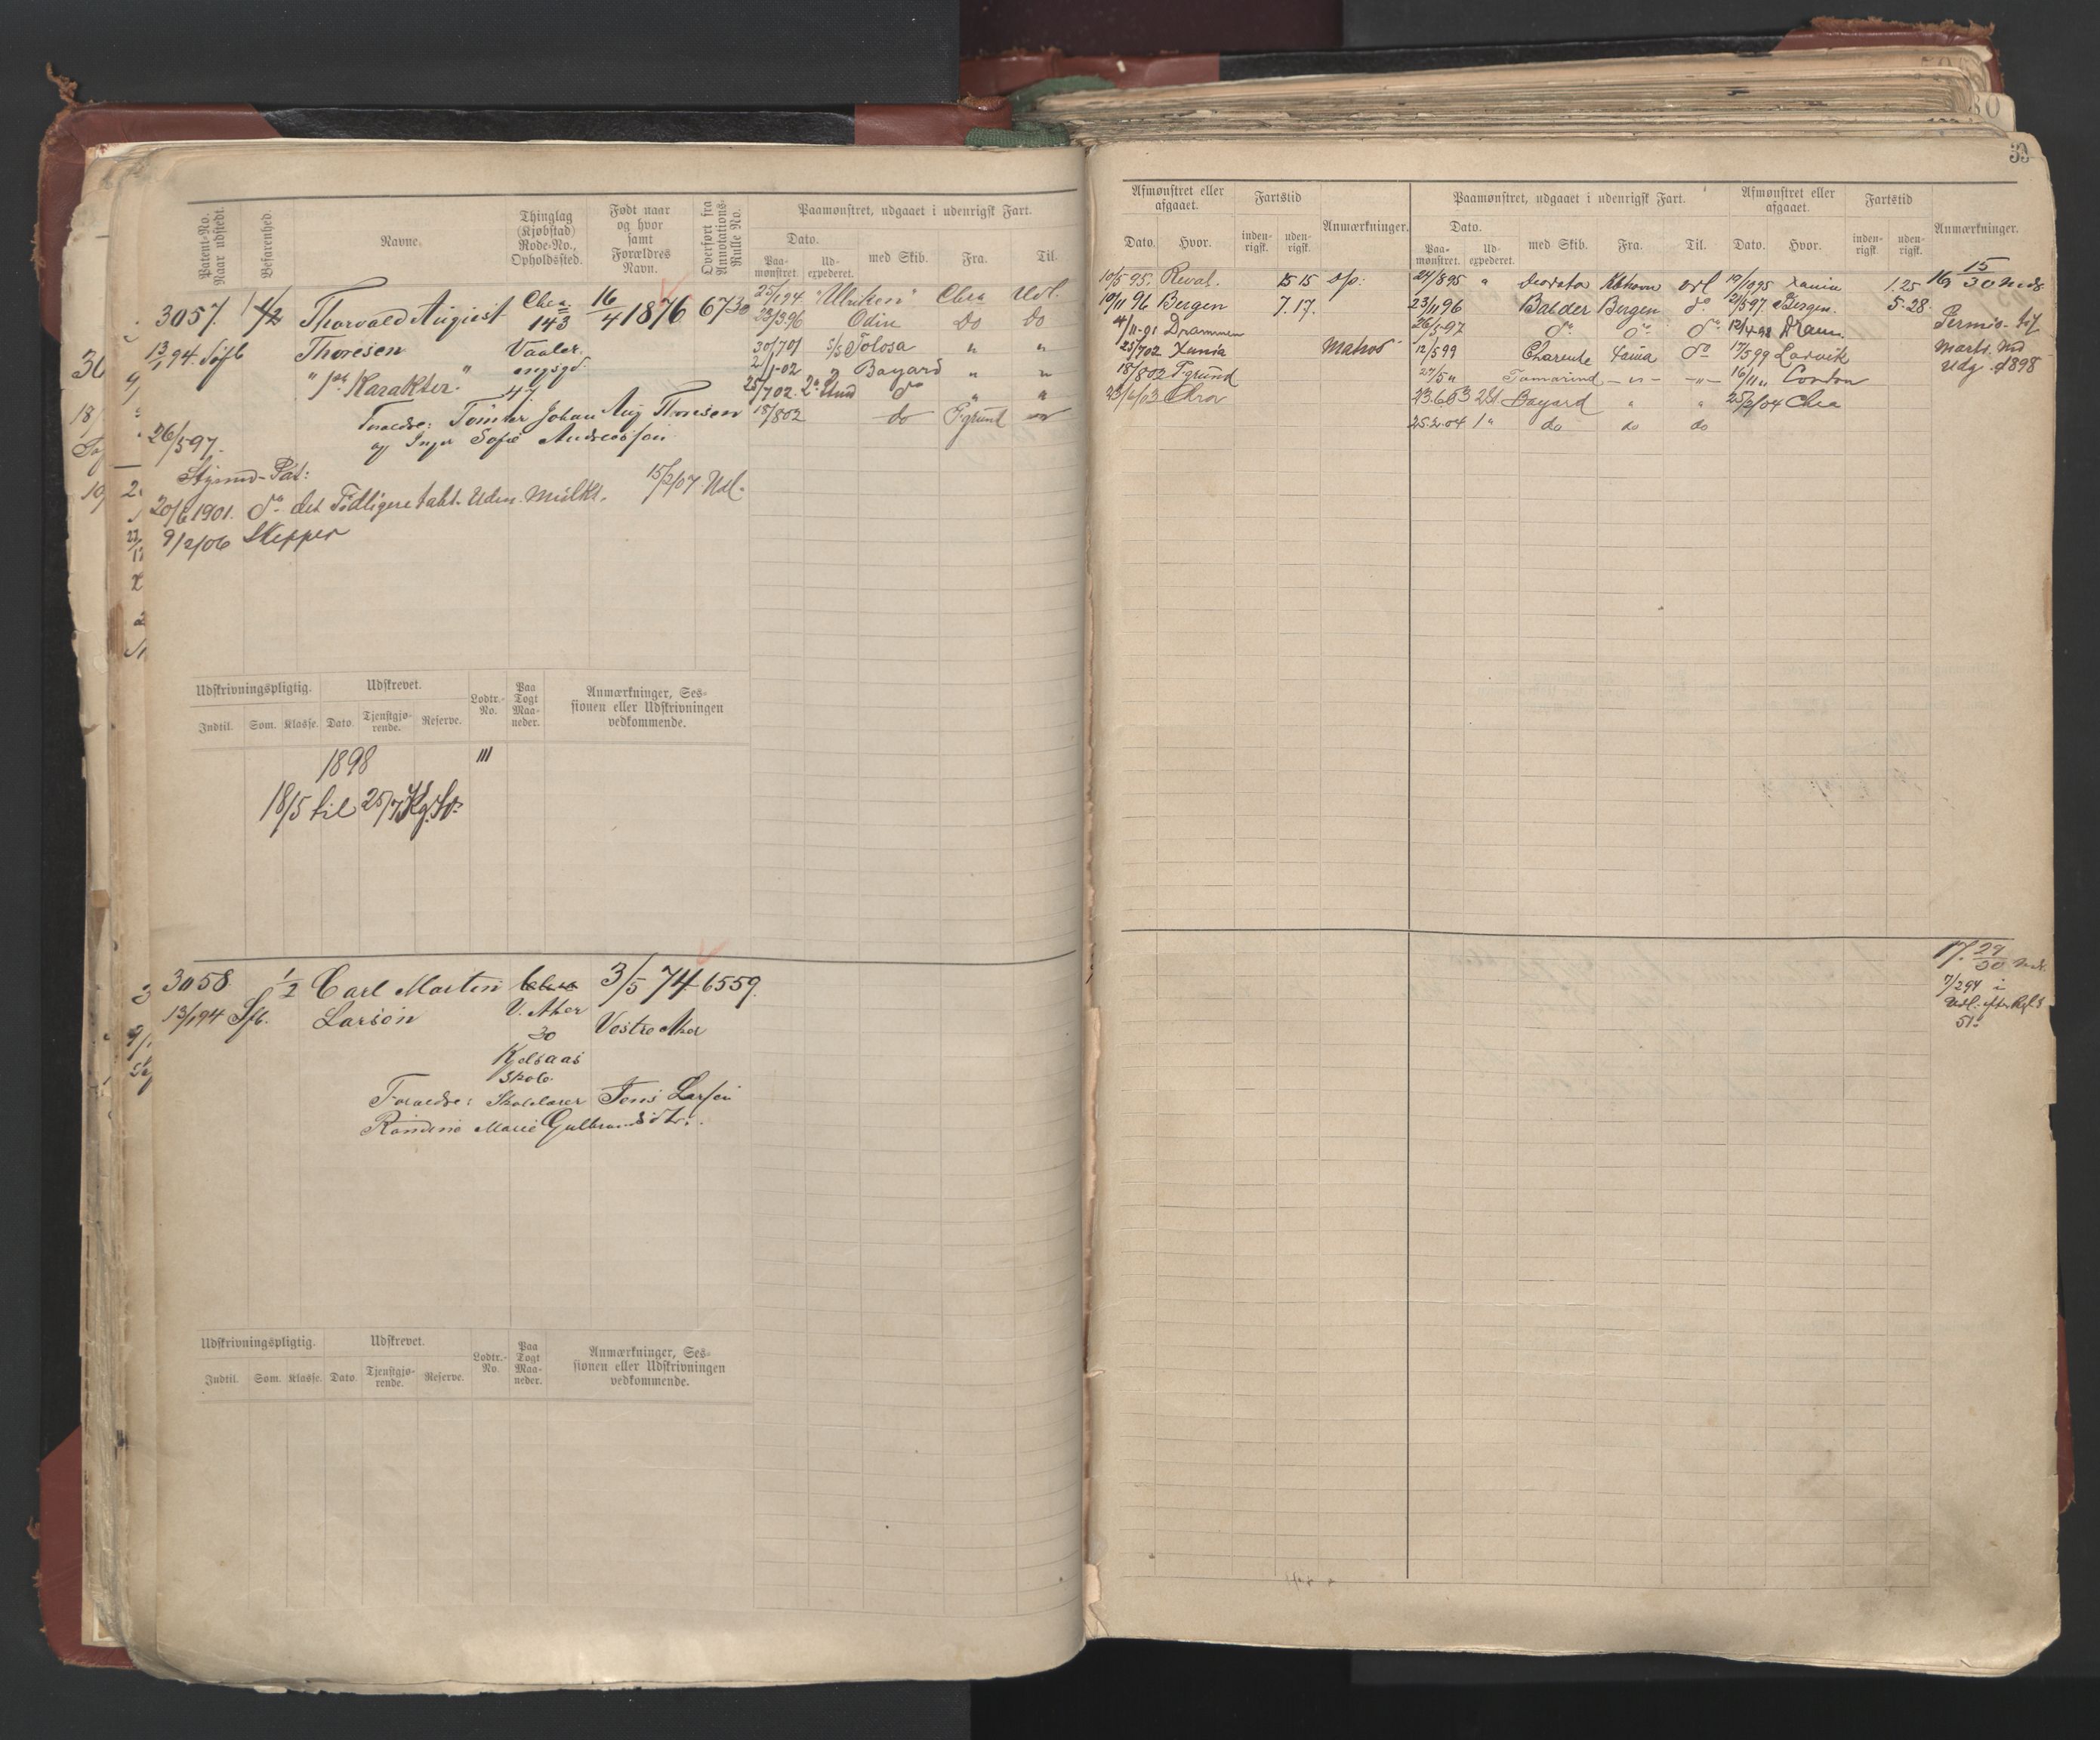 Patent-No. Naar udstedt.
Befarenhed.
Navne.
Thinglag (Kjøbstad) Rode-No., Opholdssted.
Født naar og hvor samt Forældres Navn.
Overført fra Annotations-Rulle No.
Paamønstret, udgaaet i udenrigsk Fart.
Dato.
Paa-mønstret.
Ud-expederet.
med Skib.
Fra.
Til.
3057. 1/2 Thorvald August Chra. 16/4 1876 6730
143
13/1 94. Søfb Thoresen Vaaler
"1ste Karakter." engsgd.
47
Forældre: Tømmer Johan Aug Thoresen
og Inger Sofie Andreassen
26/5 97.
Styrmd-Pat:
20/6 1901. do det Fødligere tabt. Uden. Mulkt. 15/2/07 Udl.
9/2/06 Skipper
25/1 94 "Ulriken" Chra Udl.
23/3 96 Odin Do Do
30/7 01 S/S Tolosa " "
2/1-02 " Bayard " "
25/7 02. 2. Stmd do " "
18/8 02 do Fgrund
Udskrivningspligtig.
Udskrevet.
Lodtr.-No.
Paa Togt Maa-neder.
Anmærkninger, Ses-sionen eller Udskrivningen vedkommende.
Indtil. Som. Klasse. Dato. Tjenstgjø-rende. Reserve.
1898
18/5 til 25/7
3058. 1/2 Carl Martin 3/5 74 6559.
13/1 94 Sfb. Larsen V. Aker Vestre Aker
30
Kjelsaas
Skole.
Forældre: Skolelærer Jens Larsen
Randine Marie Gulbrandsdtr.
Udskrivningspligtig.
Udskrevet.
Lodtr.-No.
Paa Togt Maa-neder.
Anmærkninger, Ses-sionen eller Udskrivningen vedkommende.
Indtil. Som. Klasse. Dato. Tjenstgjø-rende. Reserve.
Afmønstret eller afgaaet.
Fartstid
Anmærkninger.
Paamønstret, udgaaet i udenrigsk Fart.
Afmønstret eller afgaaet.
Fartstid
Anmærkninger.
Dato. Hvor. inden-rigsk. uden-rigsk.
Dato. Paa-mønstret. Ud-expederet. med Skib. Fra. Til. Dato. Hvor. inden-rigsk. uden-rigsk.
10/5 95. Reval. 15 15 o/p: 27/8 95 " Kbhavn Udl 19/10 95 1.25 16 15/30 Mds
10/11 96 Bergen 7.17. 23/11 96 Balder Bergen do 21/5 97. Bergen. 5.28.
Drammen 26/5 97 do do do 12/4 98 Dram.
25/7 02 Xania Matros 12/5 99 Charente do 17/5 99 Larvik Udg. 1898
18/8 02 Fgrund 27/5 " Tamarind -"- -"- 16/11 " London
23/6/03 Chra 23.6.03 2St Bayard " " 25/2/04 Chra
25.2.04 1" do do do
17. 29/30 Mdr.
7/2 94 i
51.